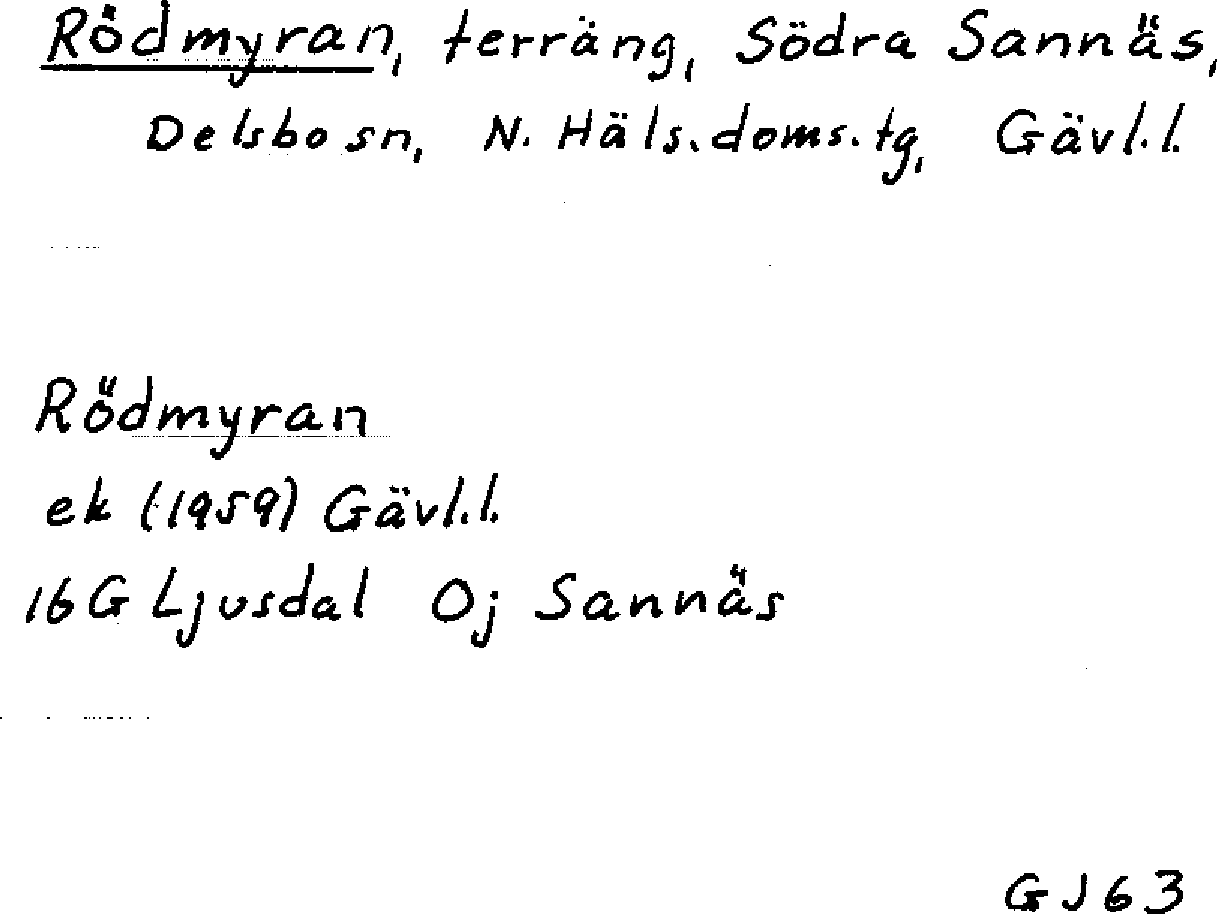 Rödmyran, terräng, Södra Sannäs,
Delsbo sn, N. Häls. doms. tg, Gävl. l.
Rödmyran
ek (1959) Gävl. l.
16 G Ljusdal 0j Sannäs
GJ 63